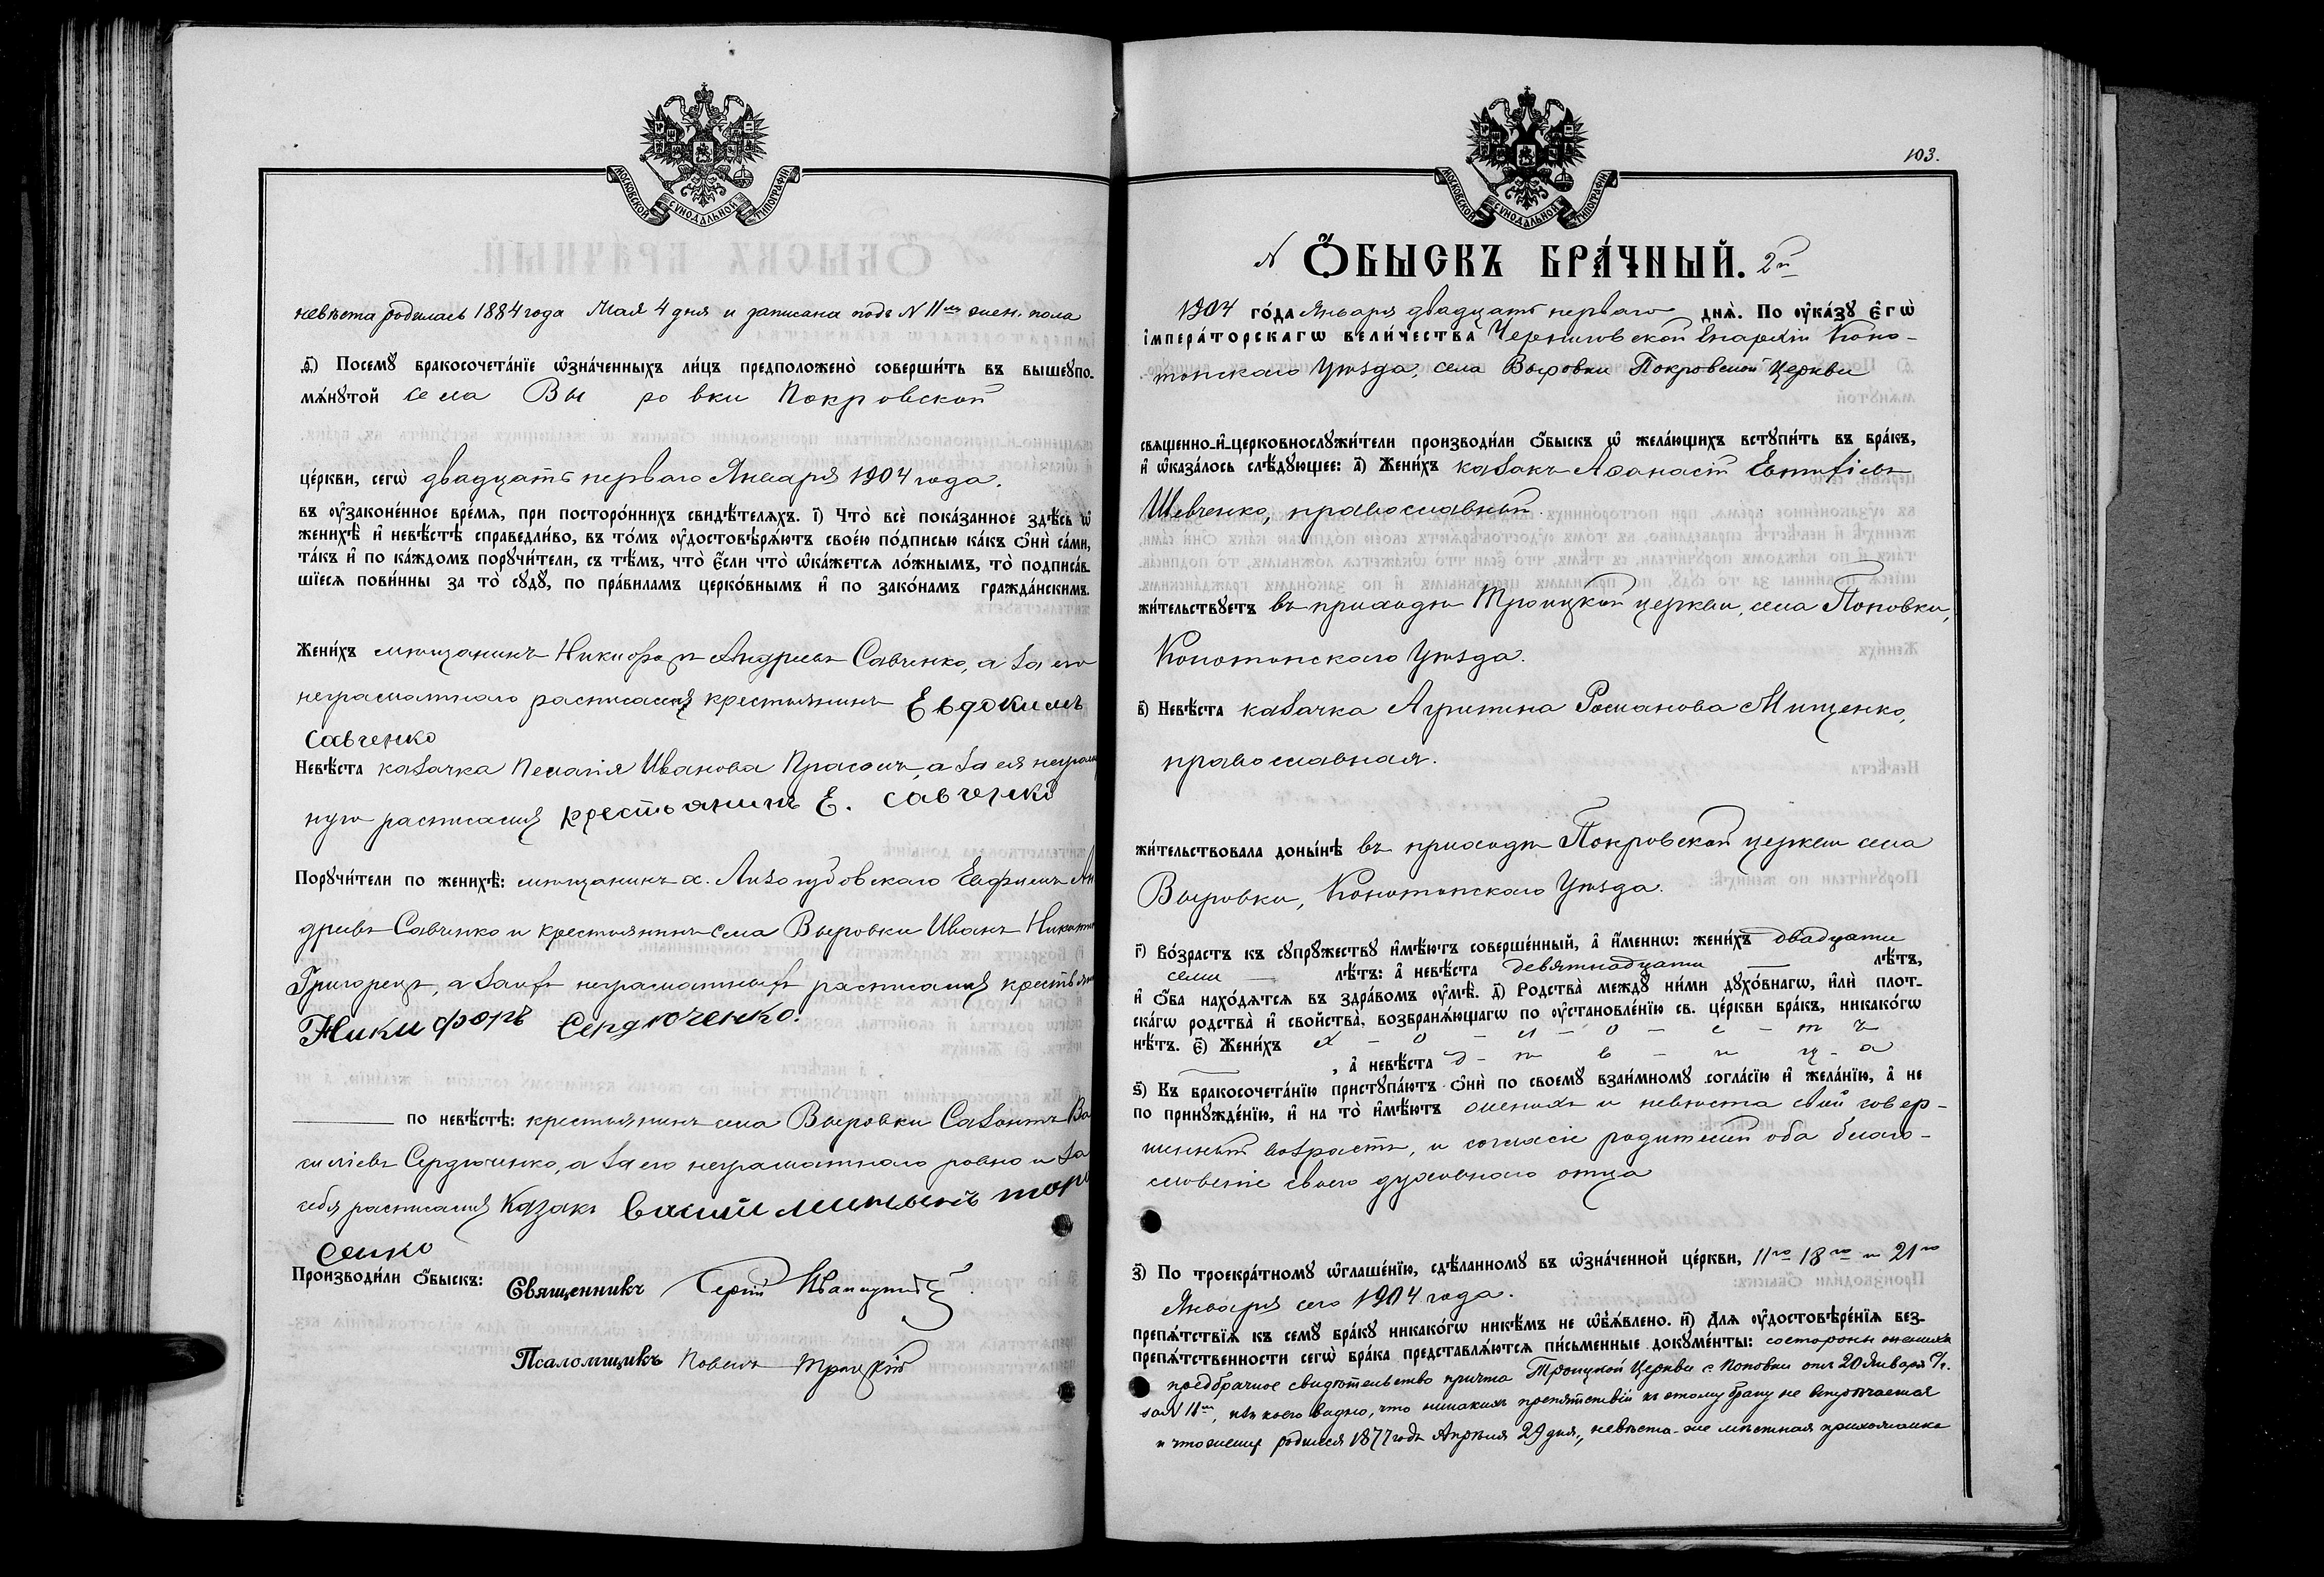 МОСКОВСКОЙ СѴНОДАЛЬНОЙ ТИПОГРАФІИ
невѣста родилась 1884 года Мая 4 дня и записана подъ N 11мъ женск. пола
ѳ҃) Посемꙋ бракосочета́нїе ѡ҆зна́ченныхъ ли́цъ предположено̀ соверши́ть въ вышеꙋпо-
мѧ́нꙋтой села Выровки Покровской
це́ркви, сегѡ̀ двадцать перваго Января 1904 года.
въ ᲂу҆законе́нное вре́мѧ, при посторо́ннихъ свидѣ́телѧхъ. і҃) Что̀ всѐ пока́занное здѣ́сь ѡ҆
женихѣ̀ и҆ невѣ́стѣ справедли́во, въ то́мъ ᲂу҆достовѣрѧ́ютъ свое́ю по́дписью ка́къ ѻ҆нѝ са́ми,
та́къ и҆ по ка́ждомъ порꙋчи́тели, съ тѣ́мъ, что̀ є҆́сли что̀ ѡ҆ка́жетсѧ ло́жнымъ, то̀ подписа́в-
шїесѧ пови́нны за то̀ сꙋдꙋ̀, по пра́виламъ церко́внымъ и҆ по зако́намъ гражда́нскимъ.
Жени́хъ мѣщанинъ Никифоръ Андреевъ Савченко, а за его
неграматнаго расписался крестьянинъ Евдокимъ
Савченко
Невѣ́ста казачка Пелагія Иванова Прасолъ, а за ея неграмат
ную расписался крестьанинъ Е. Савченко
Порꙋчи́тели по женихѣ̀: мѣщанинъ х. Лизогубовскаго Евфимъ Ан
дреевъ Савченко и крестьянинъ села Выровки Иванъ
Григорецъ, а за нихъ неграматныхъ расписался крестьянинъ
Никифоръ Сердюченко.
по невѣ́стѣ: крестьянинъ села Выровки Созонтъ Ва
силіевъ Сердюченко, а за его неграматнаго ровно и за
себя расписался Казакъ
сенко
Производи́ли ѻ҆́быскъ: Священникъ Сергій
Псаломщикъ Павелъ Троицкій
103.
МОСКОВСКОЙ СѴНОДАЛЬНОЙ ТИПОГРАФІИ
N Ѻ҆́БЫСКЪ БРА́ЧНЫЙ. 2й
1904 го́да Января двадцать перваго днѧ̀. По ᲂу҆ка́зꙋ є҆гѡ̀
і҆мпера́торскагѡ вели́чества Черниговской Епархіи Коно-
топскаго Уѣзда, села Выровки Покровской Церкви
свѧщенно-и҆-церковнослꙋжи́тели производи́ли ѻ҆́быскъ ѡ҆ жела́ющихъ встꙋпи́ть въ бра́къ,
и҆ ѡ҆каза́лось слѣ́дꙋющее: а҃) Жени́хъ казакъ Аѳанасій Евтихіевъ
Шевченко, православный.
жи́тельствꙋетъ въ приходѣ Троицкой церкви, села Поповки,
Конотопскаго Уѣзда.
в҃) Невѣ́ста казачка Агрипина Романова Мищенко,
православная.
жи́тельствовала доны́нѣ въ приходѣ Покровской церкви села
Выровки, Конотопскаго Уѣзда.
г҃) Во́зрастъ къ сꙋпрꙋ́жествꙋ и҆мѣ́ютъ соверше́нный, а҆ и҆́меннѡ: жени́хъ двадцати
семи — лѣ́тъ: а҆ невѣ́ста девятнадцати — лѣ́тъ,
и҆ ѻ҆́ба нахо́дѧтсѧ въ здра́вомъ ᲂу҆мѣ̀. д҃) Родства̀ междꙋ̀ ни́ми дꙋхо́внагѡ, и҆лѝ пло́т-
скагѡ родства̀ и҆ сво́йства̀, возбранѧ́ющагѡ по ᲂу҆становле́нїю св. це́ркви бра́къ, никако́гѡ
нѣ́тъ. є҃) Жени́хъ х - о - л - о - с - т ъ
, а҆ невѣ́ста д - ѣ в - и ц - а
ѕ҃) Къ бракосочета́нїю пристꙋпа́ютъ ѻ҆нѝ по своемꙋ̀ взаи́мномꙋ согла́сїю и҆ жела́нїю, а҆ не
по принꙋжде́нїю, и҆ на то̀ и҆мѣ́ютъ женихъ и невѣста свой совер-
шенный возрастъ, и согласіе родителей оба благо-
словеніе своего духовнаго отца
з҃) По троекра́тномꙋ ѡ҆глаше́нїю, сдѣ́ланномꙋ въ ѡ҆зна́ченной це́ркви, 11го 18го и 21го
Января сего 1904 года.
препѧ́тствїѧ къ семꙋ̀ бра́кꙋ никако́гѡ никѣ́мъ не ѡ҆б̾ѧ́влено. и҃) Длѧ ᲂу҆достовѣре́нїѧ без-
препѧ́тственности сегѡ̀ бра́ка представлѧ́ютсѧ пи́сьменные докꙋме́нты: со стороны жениха
предбрачное свидѣтельство причта Троицкой Церкви с. Поповки отъ 20 Января с/г.
за N 11мъ, изъ коего видно, что никакихъ препятствій къ этому браку не встрѣчается
и что женихъ родился 1877 года Апрѣля 29 дня, невѣста-же мѣстная прихожанка